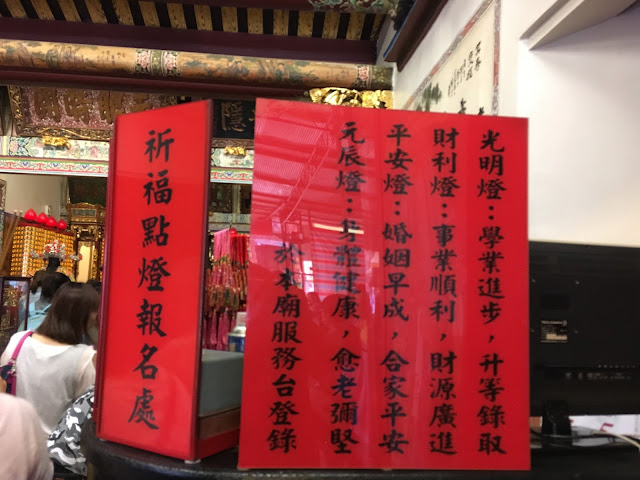 祈福點燈報名處
光明燈：學業進步，升等錄取
財利燈：事業順利，財源廣進
平安燈：婚姻早成，合家平安
元辰燈：身體健康，愈老彌堅
於本廟服務台登錄